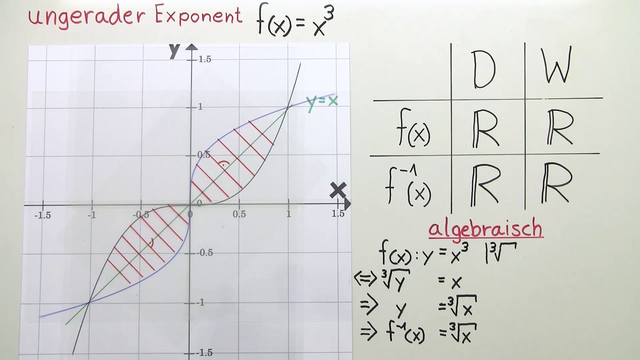 ungerader Exponent f(x) = x³
y
1.5
1
y=x
0.5
x
-1.5 -1 -0.5 0 0.5 1 1.5
-0.5
-1
-1.5
D W
f(x) ℝ ℝ
f⁻¹(x) ℝ ℝ
algebraisch
f(x): y = x³ |³√
⇔ ³√y = x
⇒ y = ³√x
⇒ f⁻¹(x) = ³√x